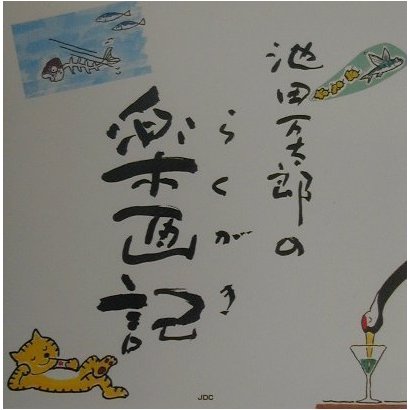 池田万太郎の
らくがき
楽画記
JDC